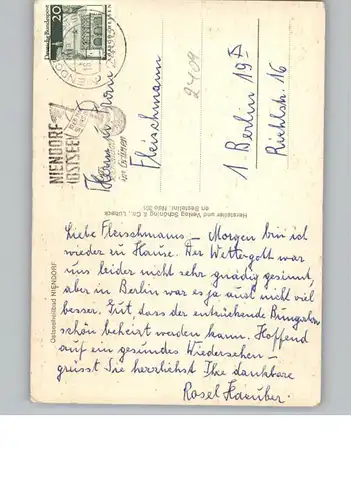 Deutsche Bundespost
20
NIENDORF
OSTSEE
Fleischmann
1 Berlin 19
Riehlstr. 16
2409
Hersteller und Verlag Schöning & Co., Lübeck
Ostseeheilbad NIENDORF
Liebe Fleischmanns – Morgen bin ich
wieder zu Hause. Der Wettergott war
uns leider nicht sehr gnädig gesinnt,
aber in Berlin war es ja auch nicht viel
besser. Gut, dass der entzückende Bungalow
schön beheizt werden kann. Hoffend
auf ein gesundes Wiedersehen –
grüsst Sie herzlichst Ihre dankbare
Rosel